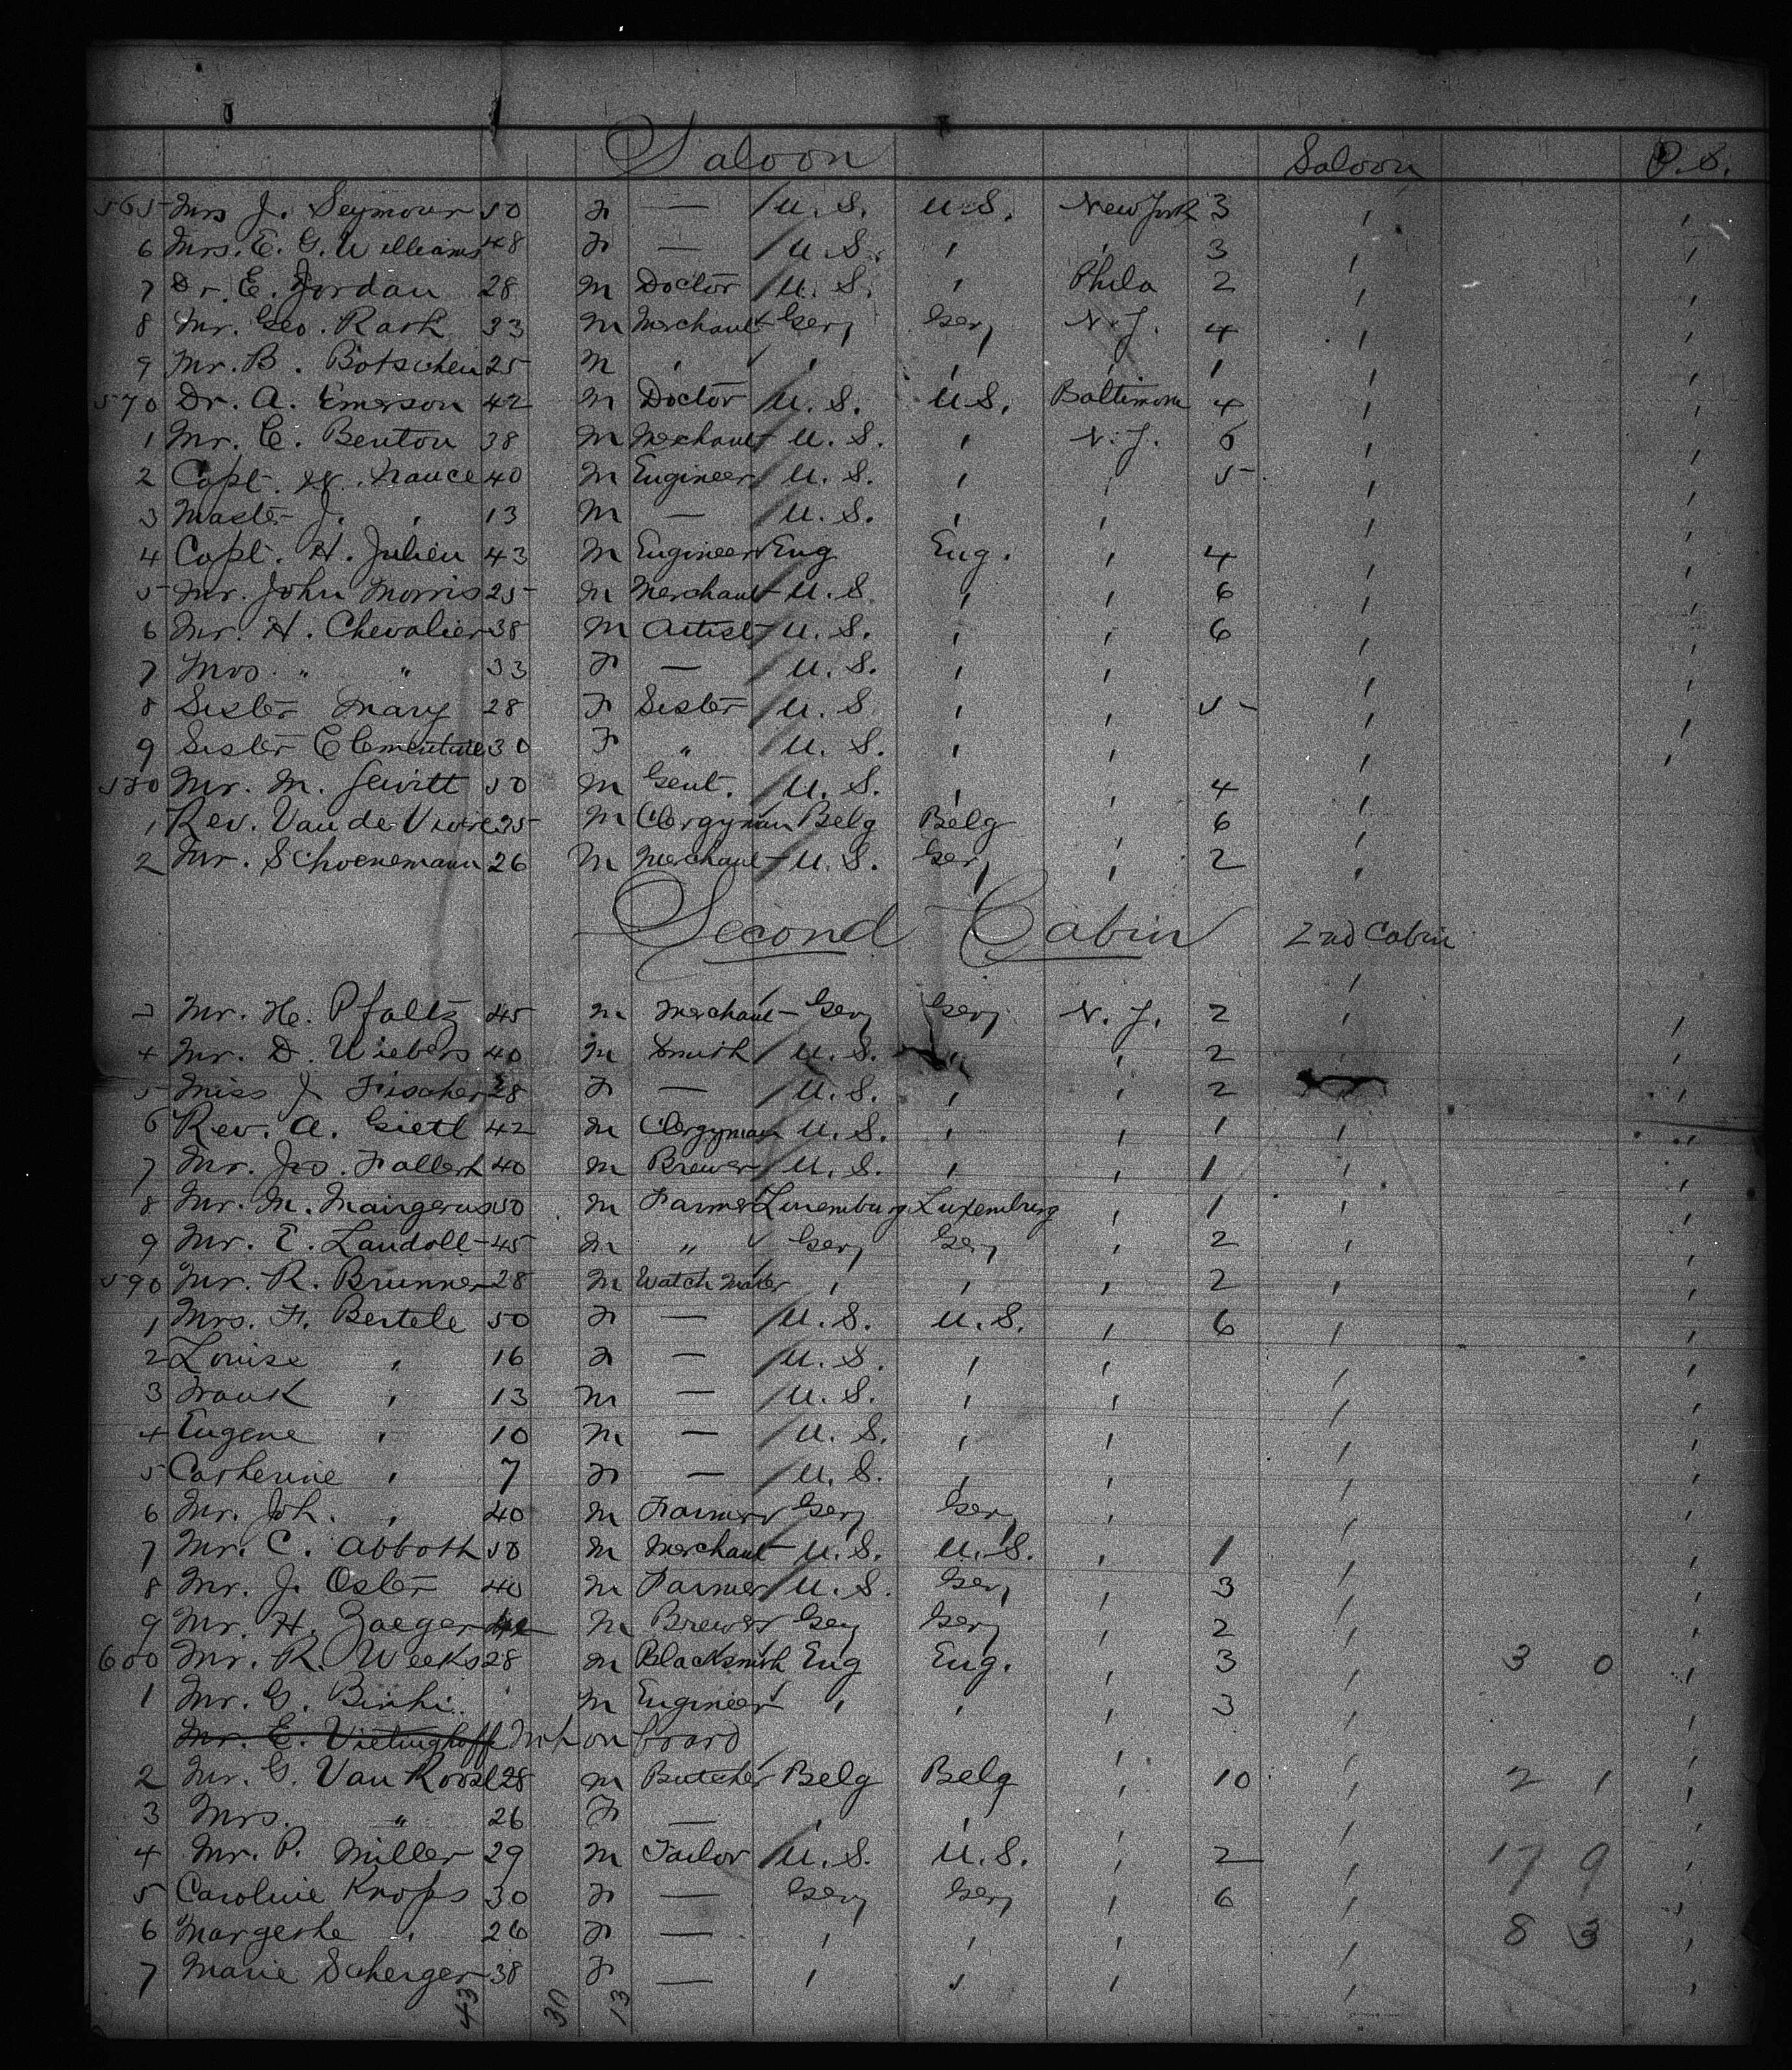 Saloon Saloon P.S.
565 Mrs J. Seymour 50 F — U.S. U.S. New York 3 "
6 Mrs. E. G. Williams 48 F — U.S. " " 3 " "
7 Dr. E. Jordan 28 M Doctor U.S. " Phila 2 " "
8 Mr. Geo. Rark 33 M Merchant Gery Gery N.Y. 4 " "
9 Mr. B. Botschen 25 M " " " " 1 " "
570 Dr. A. Emerson 42 M Doctor U.S. U.S. Baltimore 4 " "
1 Mr. C. Benton 38 M Merchant U.S. " N.Y. 6 " "
2 Capt. W. Nance 40 M Engineer U.S. " " 5 " "
3 Master J. " 13 M — U.S. " " " "
4 Capt. H. Julien 43 M Engineer Eng Eng. " 4 " "
5 Mr. John Morris 25 M Merchant U.S. " " 6 " "
6 Mr. H. Chevalier 38 M Artist U.S. " " 6 " "
7 Mrs. " " 33 F — U.S. " " " "
8 Sister Mary 28 F Sister U.S. " " 5 " "
9 Sister Clementine 30 F " U.S. " " " "
580 Mr. M. Gewitt 50 M Gent. U.S. " " 4 "
1 Rev. Van de Vivere 35 M Clergyman Belg Belg " 6 "
2 Mr. Schoenemann 26 M Merchant U.S. Gery " 2 "
Second Cabin 2nd Cabin
3 Mr. He. Pfaltz 45 M Merchant Gery Gery N.Y. 2 " "
4 Mr. D. Wiebers 40 M Smith U.S. " " 2 " "
5 Miss J. Fischer 28 F — U.S. " " 2 " "
6 Rev. A. Gietl 42 M Clergyman U.S. " " 1 " "
7 Mr. Jos. Fallert 40 M Brewer U.S. " " 1 " "
8 Mr. M. Mairgerus 50 M Farmer Luxemburg Luxemburg " 1 " "
9 Mr. E. Landolt 45 M " Gery Gery " 2 " "
590 Mr. R. Brunner 28 M Watch Maker " " " 2 " "
1 Mrs. F. Bertele 50 F — U.S. U.S. " 6 " "
2 Louise " 16 F — U.S. " " " "
3 Frank " 13 M — U.S. " " " "
4 Eugene " 10 M — U.S. " " " "
5 Catherine " 7 F — U.S. " " " "
6 Mr. Joh. " 40 M Farmer Gery Gery " " "
7 Mr. C. Abboth 50 M Merchant U.S. U.S. " 1 " "
8 Mr. J. Oster 40 M Farmer U.S. Gery " 3 " "
9 Mr. H. Zaeger M Brewer Gery Gery " 2 " "
600 Mr. R. Weeks 28 M Blacksmith Eng Eng. " 3 " 3 0 "
1 Mr. G. Binhi " M Engineer " " " 3 " "
Mr. E. Vietinghoff Not on board
2 Mr. G. Van Roosl 28 M Butcher Belg Belg " 10 " 2 1 "
3 Mrs. " 26 F — " " " " "
4 Mr. P. Miller 29 M Tailor U.S. U.S. " 2 " 17 9 "
5 Caroline Knops 30 F — Gery Gery " 6 " "
6 Margerthe " 26 F — " " " " 8 3 "
7 Marie Scherger 38 F — " " " " "
43 30 13